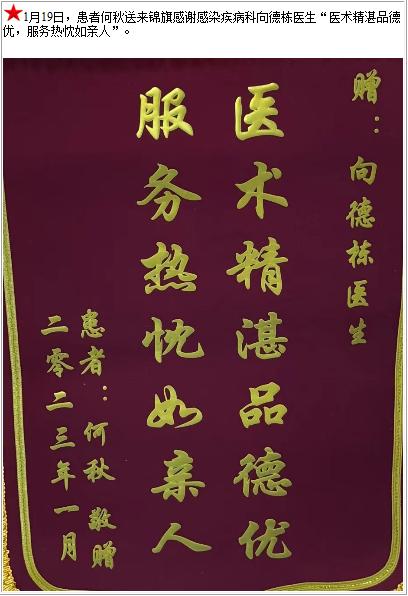 1月19日，患者何秋送来锦旗感谢感染疾病科向德栋医生“医术精湛品德
优，服务热忱如亲人”。
赠：向德栋医生
医术精湛品德优
服务热忱如亲人
患者：何秋 敬赠
二零二三年一月